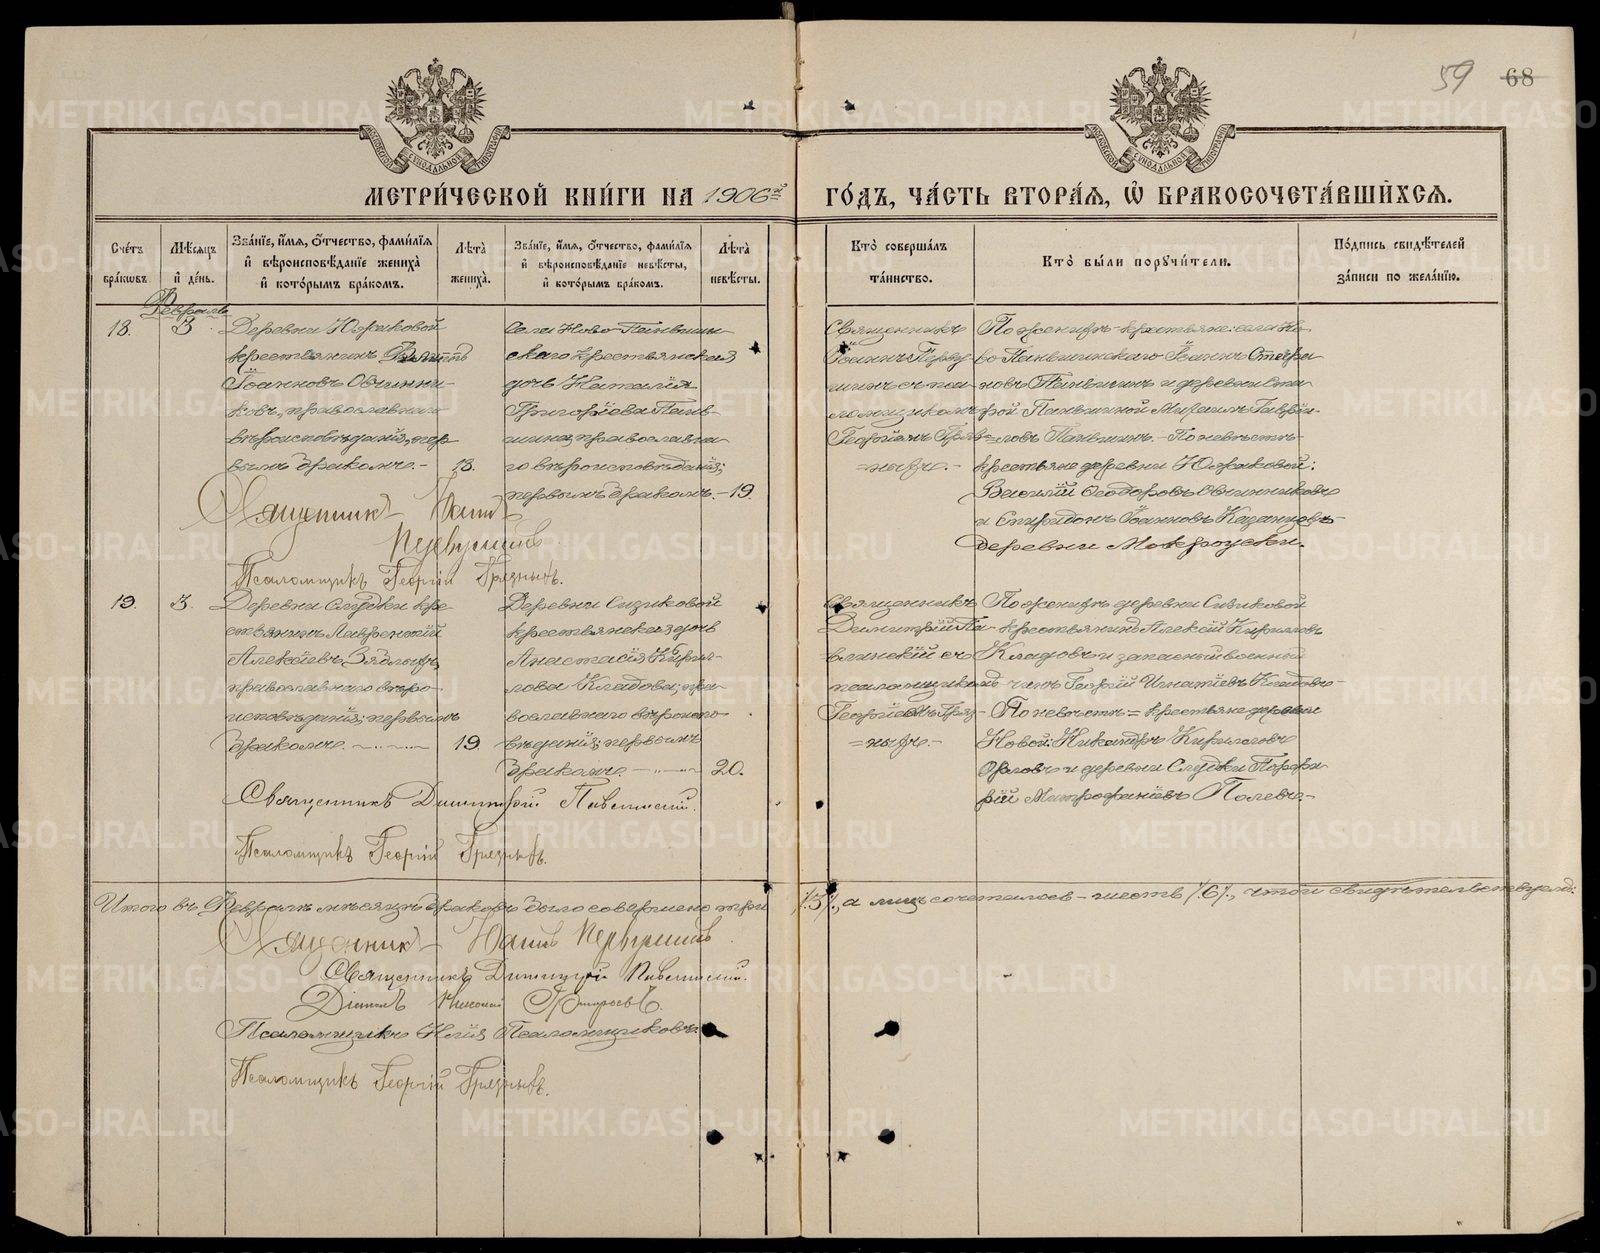 59 68
МЕТРИ́ЧЕСКОЙ КНИ́ГИ НА 1906й ГО́ДЪ, ЧА́СТЬ ВТОРА́Я, Ѡ҆ БРАКОСОЧЕТА́ВШИХСЯ.
Сче́тъ бра́ковъ.
Мѣ́сяцъ и҆ де́нь.
Зва́нїе, и҆́мя, ѻ҆́тчество, фами́лїя
и҆ вѣроисповѣ́данїе жениха̀
и҆ кото́рымъ бра́комъ.
Лѣта̀ жениха̀.
Зва́нїе, и҆́мя, ѻ҆́тчество, фами́лїя
и҆ вѣроисповѣ́данїе невѣ́сты,
и҆ кото́рымъ бра́комъ.
Лѣта̀ невѣ́сты.
Кто̀ соверша́лъ та́инство.
Кто̀ бы́ли порꙋчи́тели.
По́дпись свидѣ́телей за́писи по жела́нїю.
Февраль
18.
3
Деревни Южаковой
крестьянинъ
Іоанновъ Овчинни-
ковъ, православнаго
вѣроисповѣданія, пер
вымъ бракомъ.-
18.
Села Ново-Паньшин-
скаго крестьянская
дочь Наталія
Григоріева Пань-
шина, православна-
го вѣроисповѣданія;
первымъ бракомъ.-
19.
Священникъ
Іоаннъ Перву
шинъ съ пса-
ломщикомъ
Георгіемъ Гряз-
ныхъ.-
По женихѣ-крестьяне: села Но-
во-Паньшинскаго Іоаннъ Стефа-
новъ Паньшинъ и деревни Ста-
рой Паньшиной Михаилъ Гаврі-
ловъ Паньшинъ.- По невѣстѣ-
крестьяне деревни Южаковой:
Василій Ѳеодоровъ Овчинниковъ
и Спиридонъ Іоанновъ Казанцевъ
деревни Мокроусской.
Священникъ Іоаннъ
Первушинъ
Псаломщикъ Георгій Грязныхъ.
19.
3.
Деревни Слудки кре
стьянинъ Лаврентій
Алексіевъ Зяблыхъ
православнаго вѣро-
исповѣданія; первымъ
бракомъ.
19.
Деревни Сизиковой
крестьянская дочь
Анастасія Кирил-
лова Кладова; пра
вославнаго вѣроиспо-
вѣданія; первымъ
бракомъ.
20.
Священникъ
Димитрій Па-
влинскій съ
псаломщикомъ
Георгіемъ Гряз-
ныхъ.-
По женихѣ деревни Сизиковой
крестьянинъ Алексій Кирилловъ
Кладовъ и запасный военный
чинъ Георгій Игнатіевъ Кладовъ.-
По невѣстѣ = крестьяне деревни
Новой: Никандръ Кирилловъ
Орловъ и деревни Слудки Порфи-
рій Митрофановъ Полевъ.-
Священникъ Димитрій Павлинскій.
Псаломщикъ Георгій Грязныхъ.
Итого въ Февралѣ мѣсяцѣ браковъ было совершено три /3/, а лицъ сочеталось - шесть /6/, въ томъ свидѣтельствуемъ:
Священникъ Іоаннъ Первушинъ
Священникъ Димитрій Павлинскій.
Діаконъ Николай
Псаломщикъ Илія Псаломщиковъ
Псаломщикъ Георгій Грязныхъ.
METRIKI.GASO-URAL.RU